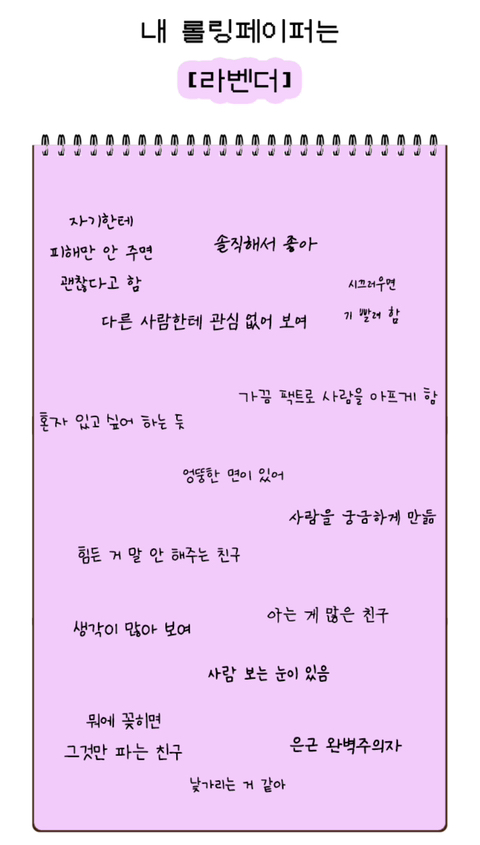 내 롤링페이퍼는
[라벤더]
자기한테
피해만 안 주면
괜찮다고 함
솔직해서 좋아
시끄러우면
기 빨려 함
다른 사람한테 관심 없어 보여
가끔 팩트로 사람을 아프게 함
혼자 있고 싶어 하는 듯
엉뚱한 면이 있어
사람을 궁금하게 만듦
힘든 거 말 안 해주는 친구
아는 게 많은 친구
생각이 많아 보여
사람 보는 눈이 있음
뭐에 꽂히면
그것만 파는 친구
은근 완벽주의자
낯가리는 거 같아